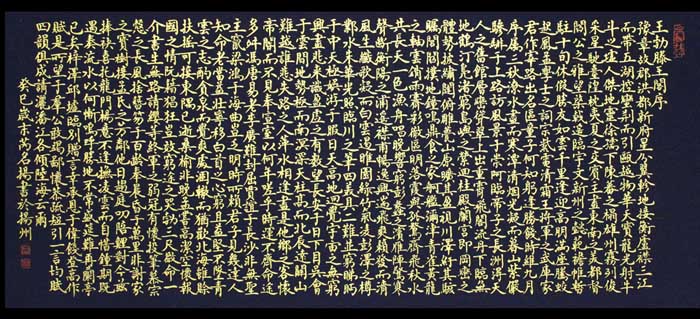 王勃滕王閣序
豫章故郡洪都新府星分翼軫地接衡廬襟三江
而帶五湖控蠻荊而引甌越物華天寶龍光射牛
斗之墟人傑地靈徐孺下陳蕃之榻雄州霧列俊
采星馳臺隍枕夷夏之交賓主盡東南之美都督
閻公之雅望棨戟遙臨宇文新州之懿範襜帷暫
駐十旬休假勝友如雲千里逢迎高朋滿座騰蛟
起鳳孟學士之詞宗紫電清霜王將軍之武庫家
君作宰路出名區童子何知躬逢勝餞時維九月
序屬三秋潦水盡而寒潭清煙光凝而暮山紫儼
驂騑於上路訪風景於崇阿臨帝子之長洲得天
人之舊館層巒聳翠上出重霄飛閣流丹下臨無
地鶴汀鳧渚窮島嶼之縈迴桂殿蘭宮即岡巒之
體勢披繡闥俯雕甍山原曠其盈視川澤紆其駭
矚閭閻撲地鐘鳴鼎食之家舸艦彌津青雀黃龍
之軸雲銷雨霽彩徹區明落霞與孤鶩齊飛秋水
共長天一色漁舟唱晚響窮彭蠡之濱雁陣驚寒
聲斷衡陽之浦遙襟甫暢逸興遄飛爽籟發而清
風生纖歌凝而白雲遏睢園綠竹氣凌彭澤之樽
鄴水朱華光照臨川之筆四美具二難並窮睇眄
於中天極娛遊於暇日天高地迥覺宇宙之無窮
興盡悲來識盈虛之有數望長安於日下目吳會
於雲間地勢極而南溟深天柱高而北辰遠關山
難越誰悲失路之人萍水相逢盡是他鄉之客懷
帝閽而不見奉宣室以何年嗟乎時運不齊命途
多舛馮唐易老李廣難封屈賈誼於長沙非無聖
主竄梁鴻於海曲豈乏明時所賴君子見幾達人
知命老當益壯寧移白首之心窮且益堅不墜青
雲之志酌貪泉而覺爽處涸轍而猶歡北海雖賒
扶搖可接東隅已逝桑榆非晚孟嘗高潔空懷報
國之情阮籍猖狂豈效窮途之哭勃三尺微命一
介書生無路請纓等終軍之弱冠有懷投筆慕宗
愨之長風捨簪笏於百齡奉晨昏於萬里非謝家
之寶樹接孟氏之芳鄰他日趨庭叨陪鯉對今茲
捧袂喜托龍門楊意不逢撫凌雲而自惜鍾期既
遇奏流水以何慚嗚呼勝地不常盛筵難再蘭亭
已矣梓澤邱墟臨別贈言幸承恩於偉餞登高作
賦是所望於羣公敢竭鄙懷恭疏短引一言均賦
四韻俱成請灑潘江各傾陸海云爾
癸巳歲末萬名揚書於揚州